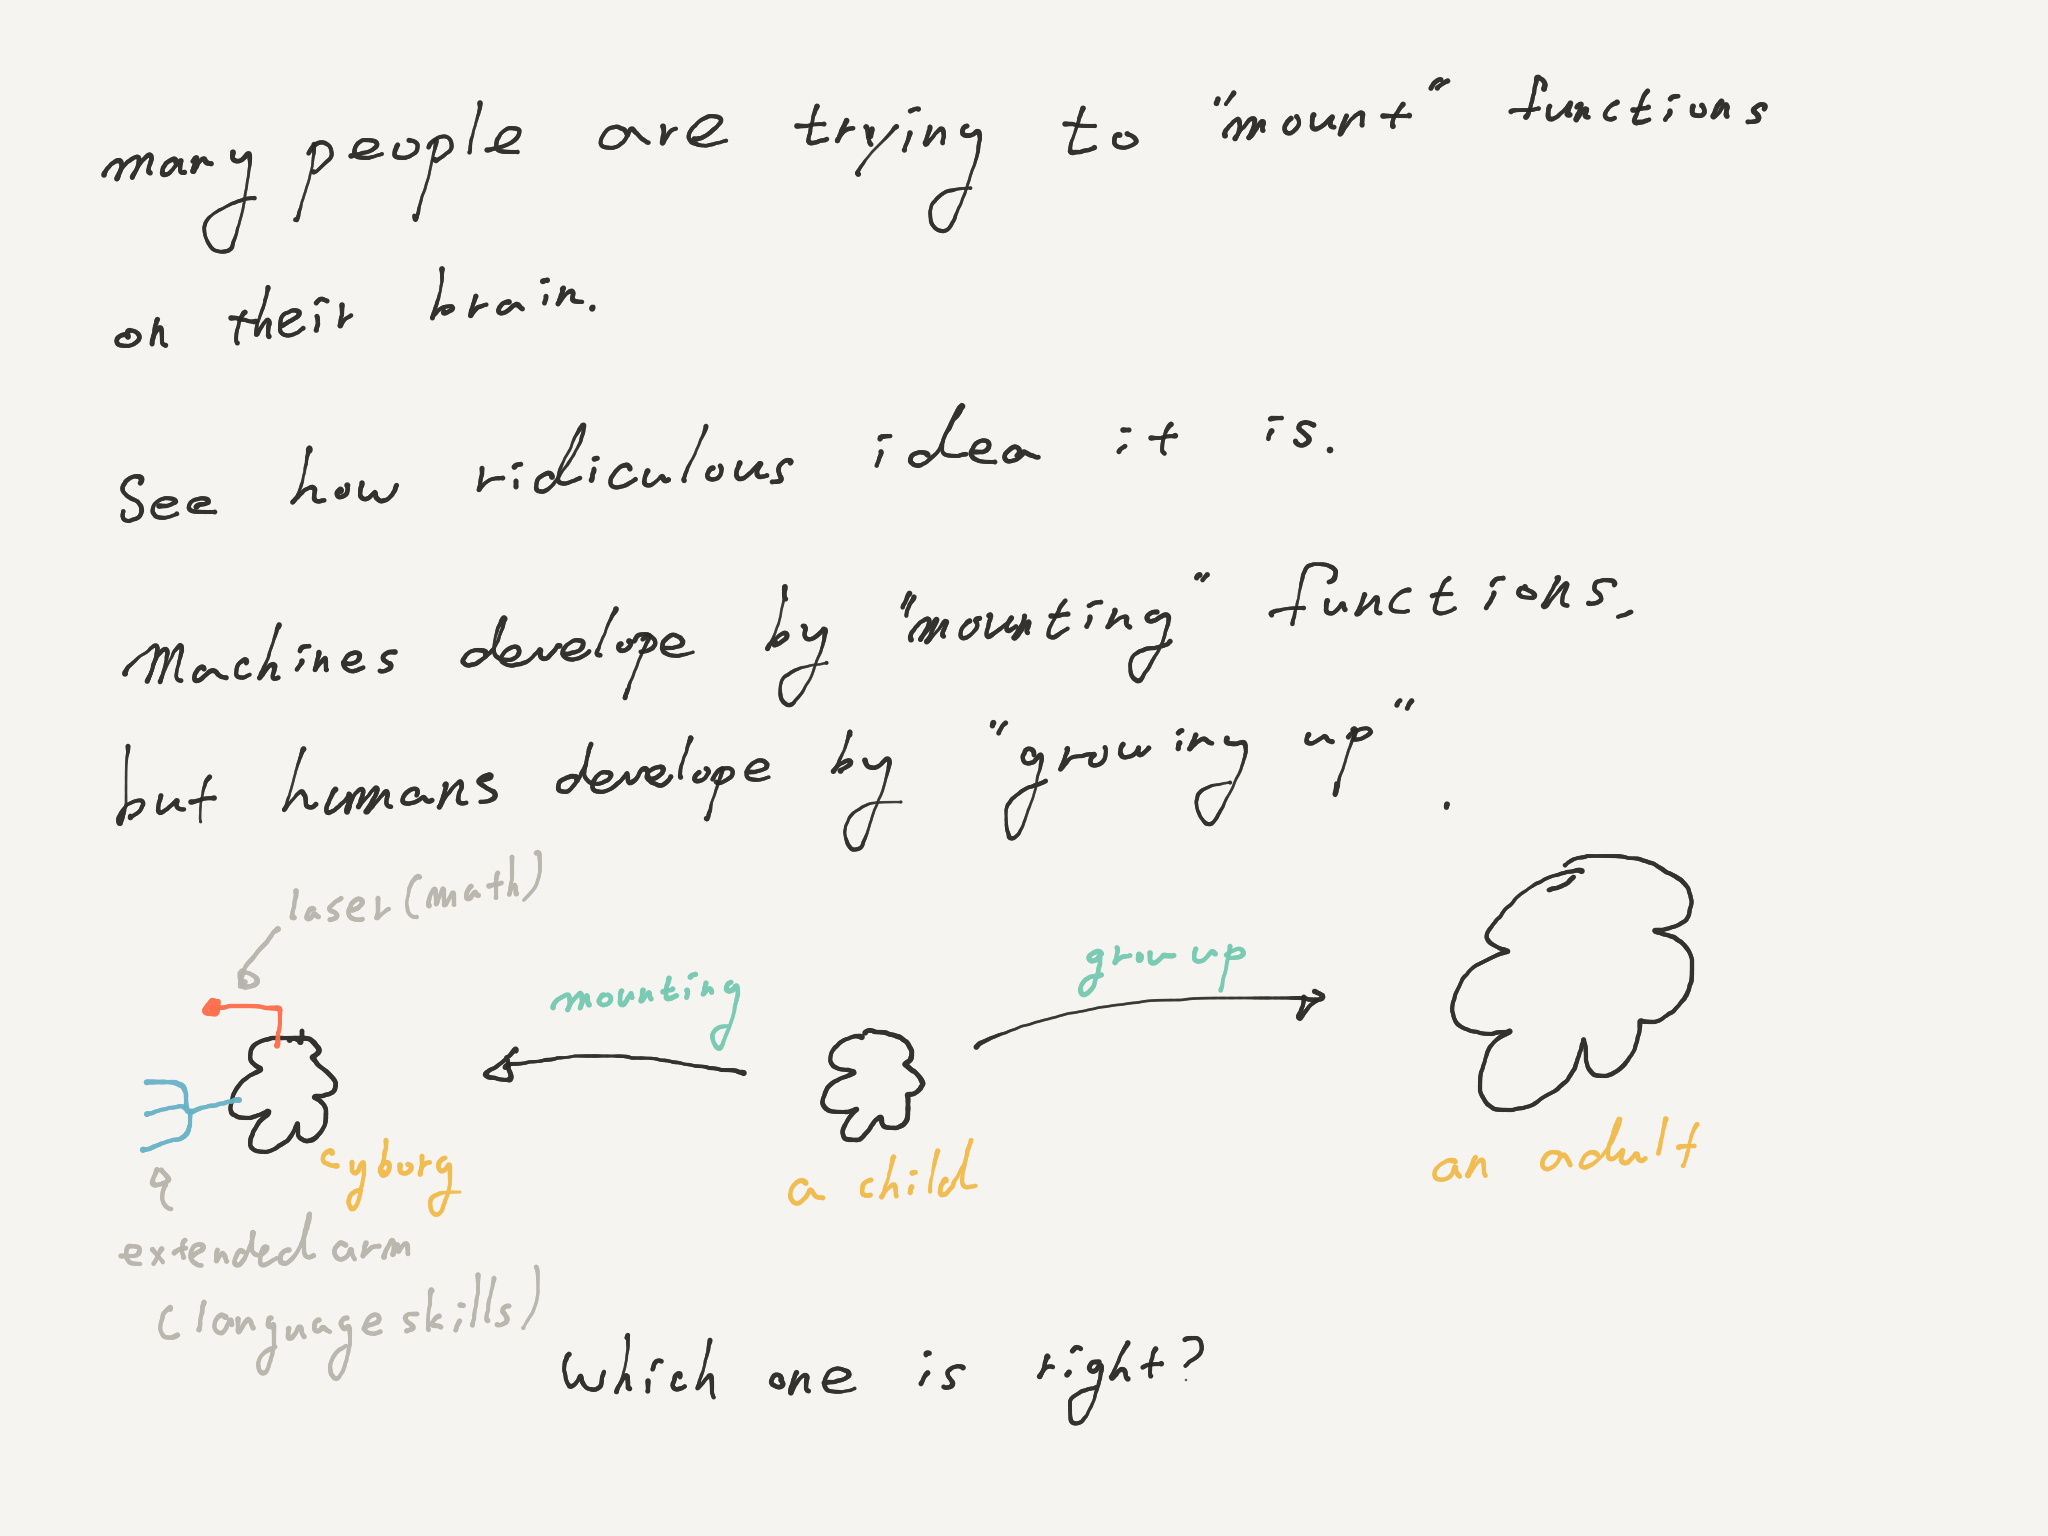 many people are trying to "mount" functions
on their brain.
See how ridiculous idea it is.
Machines develope by "mounting" functions,
but humans develope by "growing up".
laser (math)
mounting
grow up
cyborg
a child
an adult
extended arm
(language skills)
Which one is right?